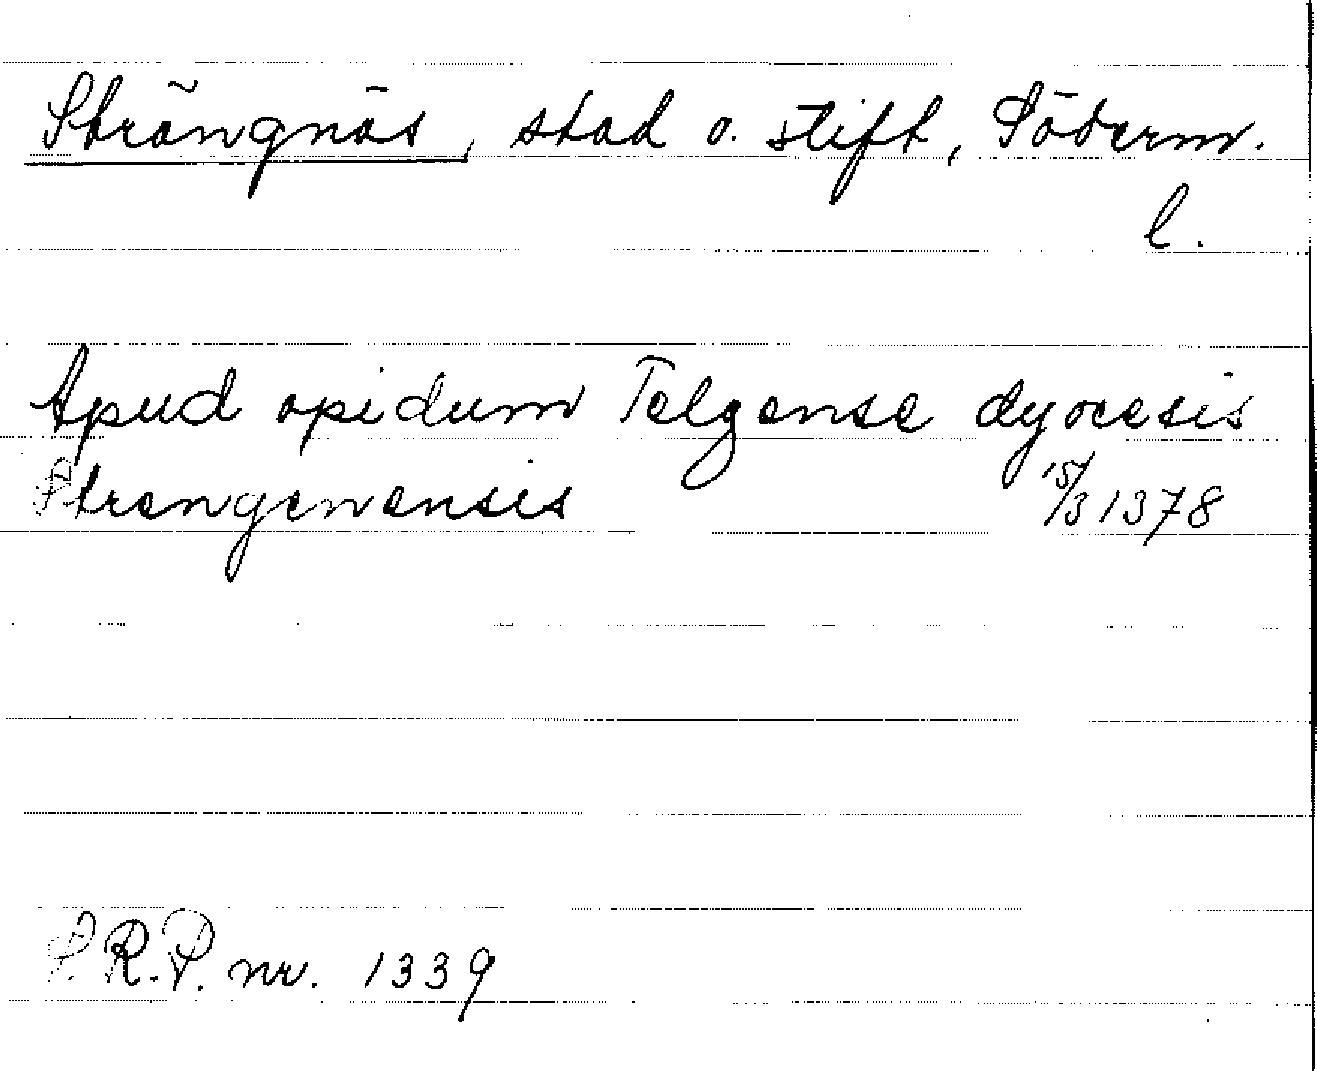 Strängnäs, stad o. stift, Söderm.
l.
Apud opidum Telgense dyocesis
Strengenensis 15/3 1378
S.R.P. nr. 1339